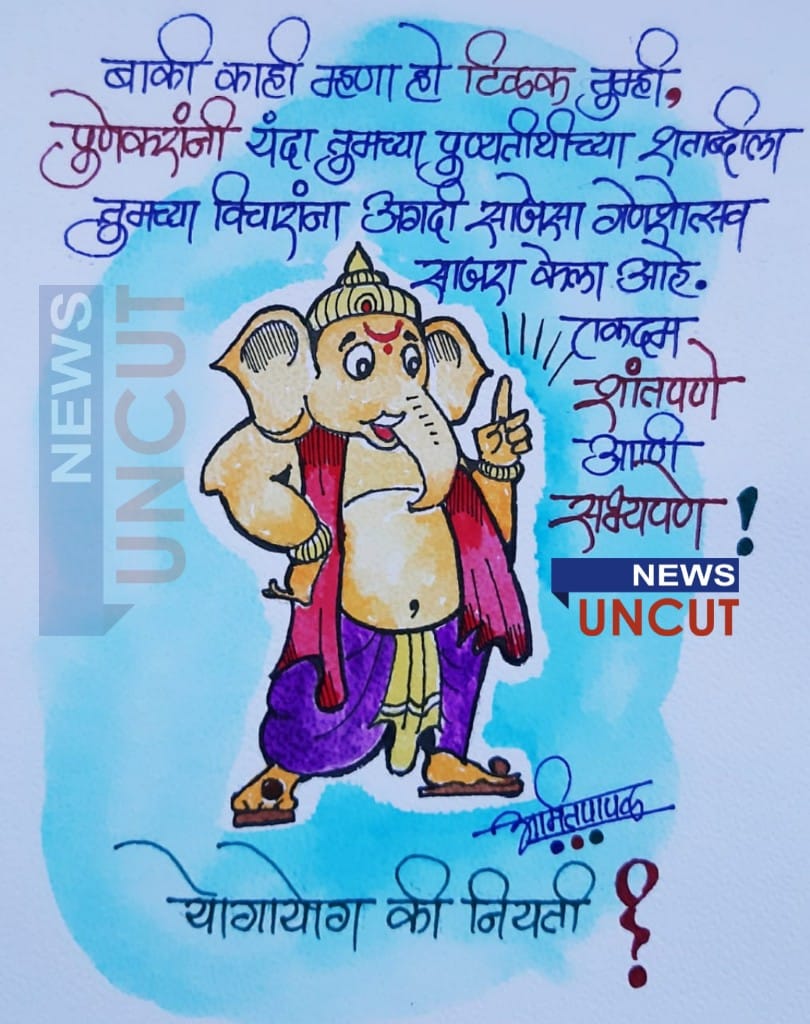 बाकी काही म्हणा हो टिळक तुम्ही,
पुणेकरांनी यंदा तुमच्या पुण्यतीथीच्या शताब्दीला
तुमच्या विचारांना अगदी साजेसा गणेशोत्सव
साजरा केला आहे.
एकदम
शांतपणे
आणि
सभ्यपणे !
NEWS
UNCUT
NEWS
UNCUT
योगायोग की नियती ?